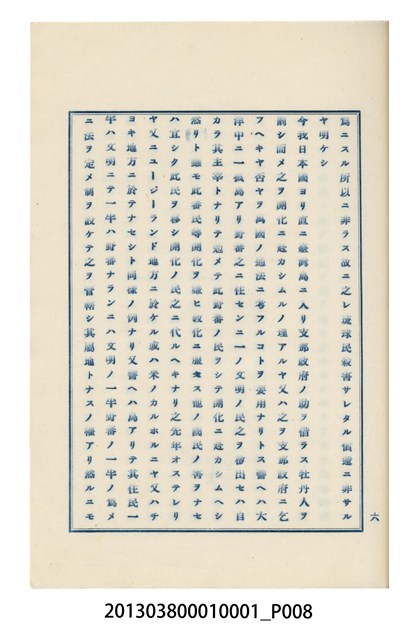 為ニスル所以ニ非ラス故ニ之レ琉球民殺害サレタル償還ニ非サル
ヤ明ケシ
今我日本國ヨリ直ニ臺灣島ニ入リ支那政府ノ助ヲ借ラス牡丹人ヲ
前シ而メ之ヲ開化ニ赴カシムルノ理アルヤ又ハ之ヲ支那政府ニ乞
フヘキヤ否ヤヲ萬國ノ地法ニ考フルコトヲ要用ナリトス譬ヘハ大
洋中ニ一孤島アリ野蕃之ニ住センニ一ノ文明ノ民之ヲ移出セハ自
カラ其主宰トナリテ遏メテ此野蕃ノ民ヲシテ開化ニ赴カシムヘシ
然リト雖モ此蕃民等開化ヲ嫌ヒ敎化ニ服セス他ノ國民ノ害ヲナセ
ハ宜シク此民ヲ移シ開化ノ民之ニ代ルヘキナリ之先年オステレリ
ヤ又ニユージーランド地方ニ於ケル或ハ米ノカルホルニヤ又ハチ
ヨキ地方ニ於テナセシト同樣ノ例ナリ又譬ヘハ島アリテ其住民一
半ハ文明ニテ一半ハ野蕃ナランニハ文明ノ一半野蕃ノ一半ノ爲メ
ニ法ヲ定メ制ヲ設ケテ之ヲ管轄シ其屬地トナスノ權アリ然ルニモ
六
201303800010001_P008